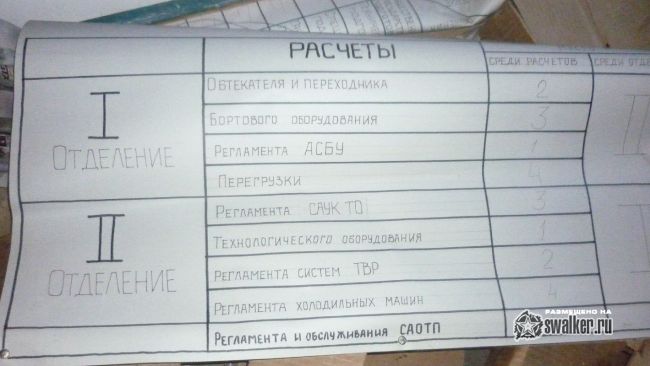 РАСЧЕТЫ
СРЕДИ РАСЧЕТОВ
СРЕДИ
I
ОТДЕЛЕНИЕ
ОБТЕКАТЕЛЯ И ПЕРЕХОДНИКА 2
БОРТОВОГО ОБОРУДОВАНИЯ 3
РЕГЛАМЕНТА АСБУ 1
ПЕРЕГРУЗКИ 4
II
ОТДЕЛЕНИЕ
РЕГЛАМЕНТА САУК ТО 3
ТЕХНОЛОГИЧЕСКОГО ОБОРУДОВАНИЯ 1
РЕГЛАМЕНТА СИСТЕМ ТВР 2
РЕГЛАМЕНТА ХОЛОДИЛЬНЫХ МАШИН 4
РЕГЛАМЕНТА И ОБСЛУЖИВАНИЯ САОТП
РАЗМЕЩЕНО НА
swalker.ru